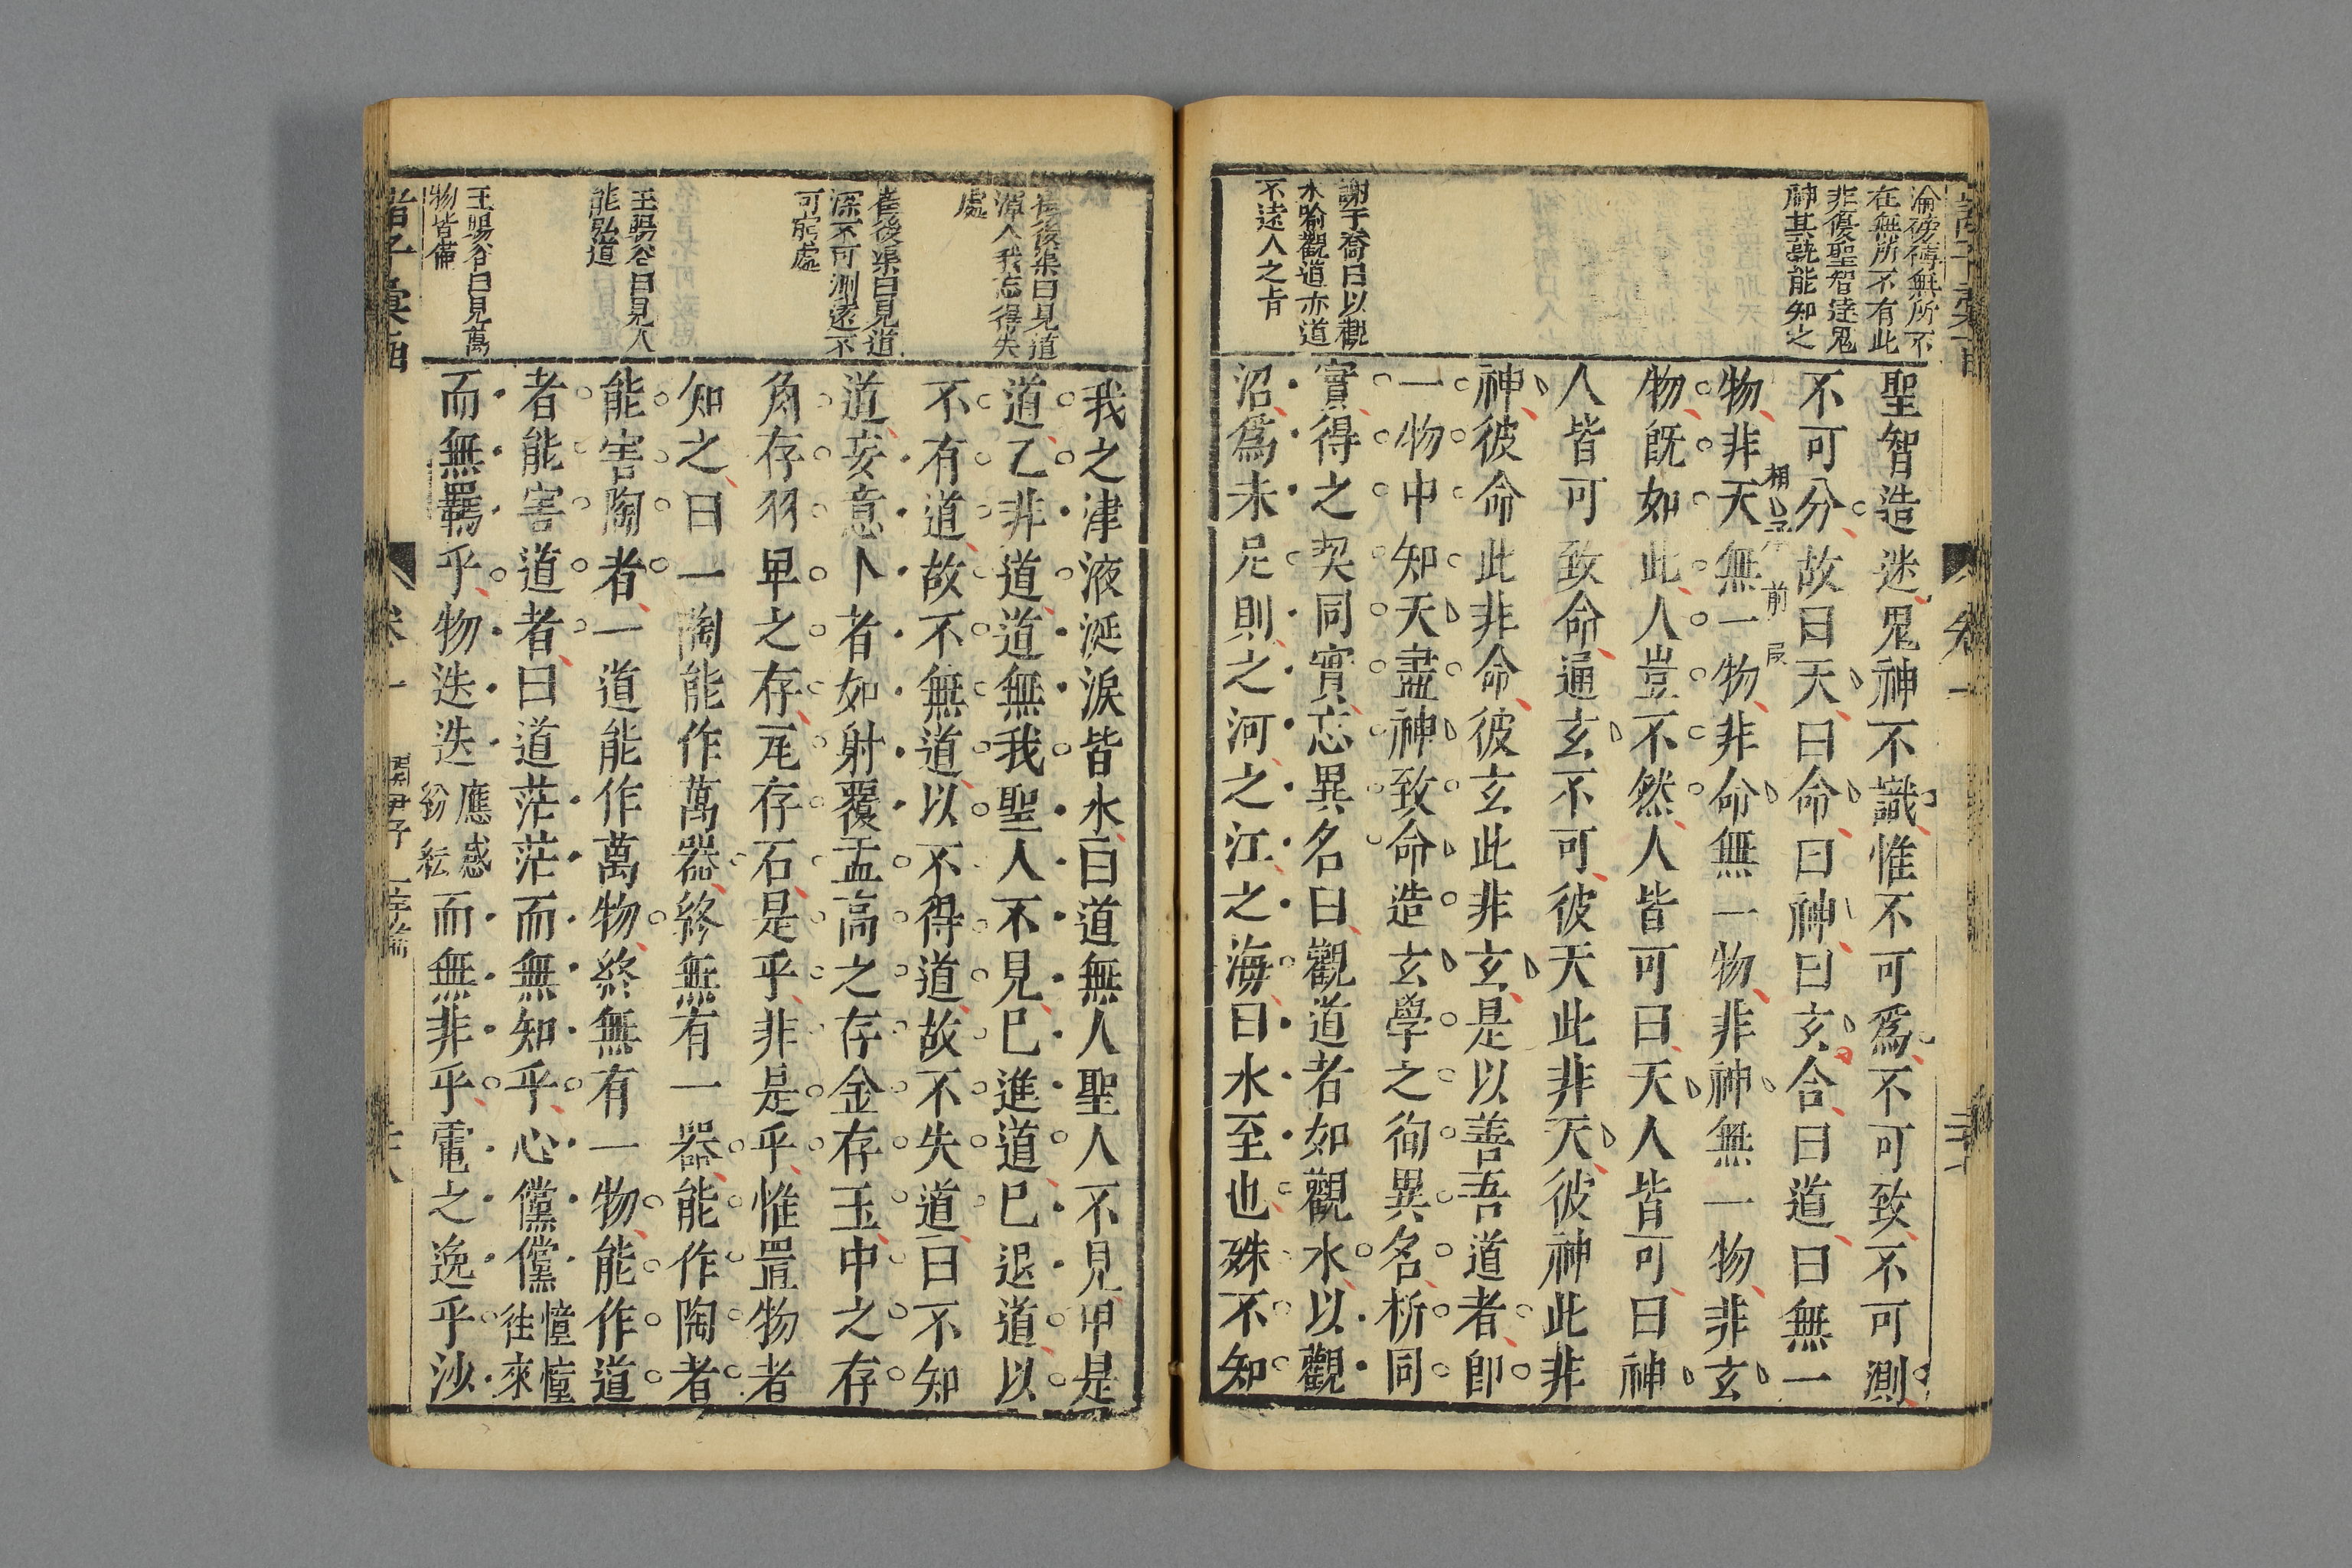 淪磅礴無所不
在無所不有此
非復聖智達鬼
神其孰能知之
謝于喬曰以觀
水喻觀道亦道
不遠人之㫖
聖智造迷鬼神不識惟不可為不可致不可測
不可分故曰天曰命曰神曰玄合曰道曰無一
物非天無一物非命無一物非神無一物非玄
物既如此人豈不然人皆可曰天人皆可曰神
人皆可致命通玄不可彼天此非天彼神此非
神彼命此非命彼玄此非玄是以善吾道者即
一物中知天盡神致命造玄學之徇異名析同
實得之契同實忘異名曰觀道者如觀水以觀
沼為未足則之河之江之海曰水至也殊不知
崔後渠曰見道
渾人我忘得失
處
崔後渠曰見道
深不可測遠不
可窮處
王暘谷曰見人
能弘道
王暘谷曰見萬
物皆備
我之津液涎淚皆水曰道無人聖人不見甲是
道乙非道道無我聖人不見已進道已退道以
不有道故不無道以不得道故不失道曰不知
道妄意卜者如射覆盂高之存金存玉中之存
角存羽卑之存瓦存石是乎非是乎惟置物者
知之曰一陶能作萬器終無有一器能作陶者
能害陶者一道能作萬物終無有一物能作道
者能害道者曰道茫茫而無知乎心儻儻憧憧往來
而無羈乎物迭迭應感紛紜而無非乎電之逸乎沙
諸子彙函
卷一
關尹子